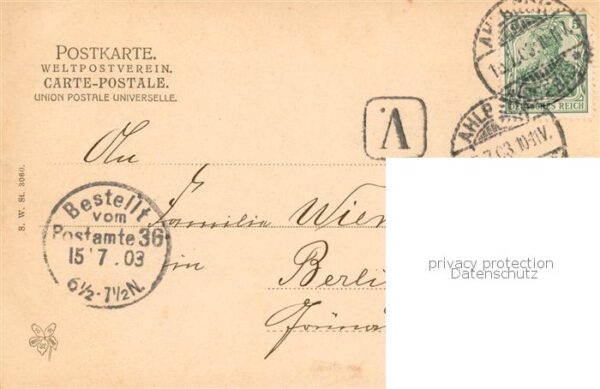 POSTKARTE.
WELTPOSTVEREIN.
CARTE-POSTALE.
UNION POSTALE UNIVERSELLE.
5
DEUTSCHES REICH
V.
7.03.10-11V.
S. W. St. 3060.
An
Familie
in
Berli
Bestellt
vom
Postamte 36
15 7.03
6½-7½N.
privacy protection
Datenschutz